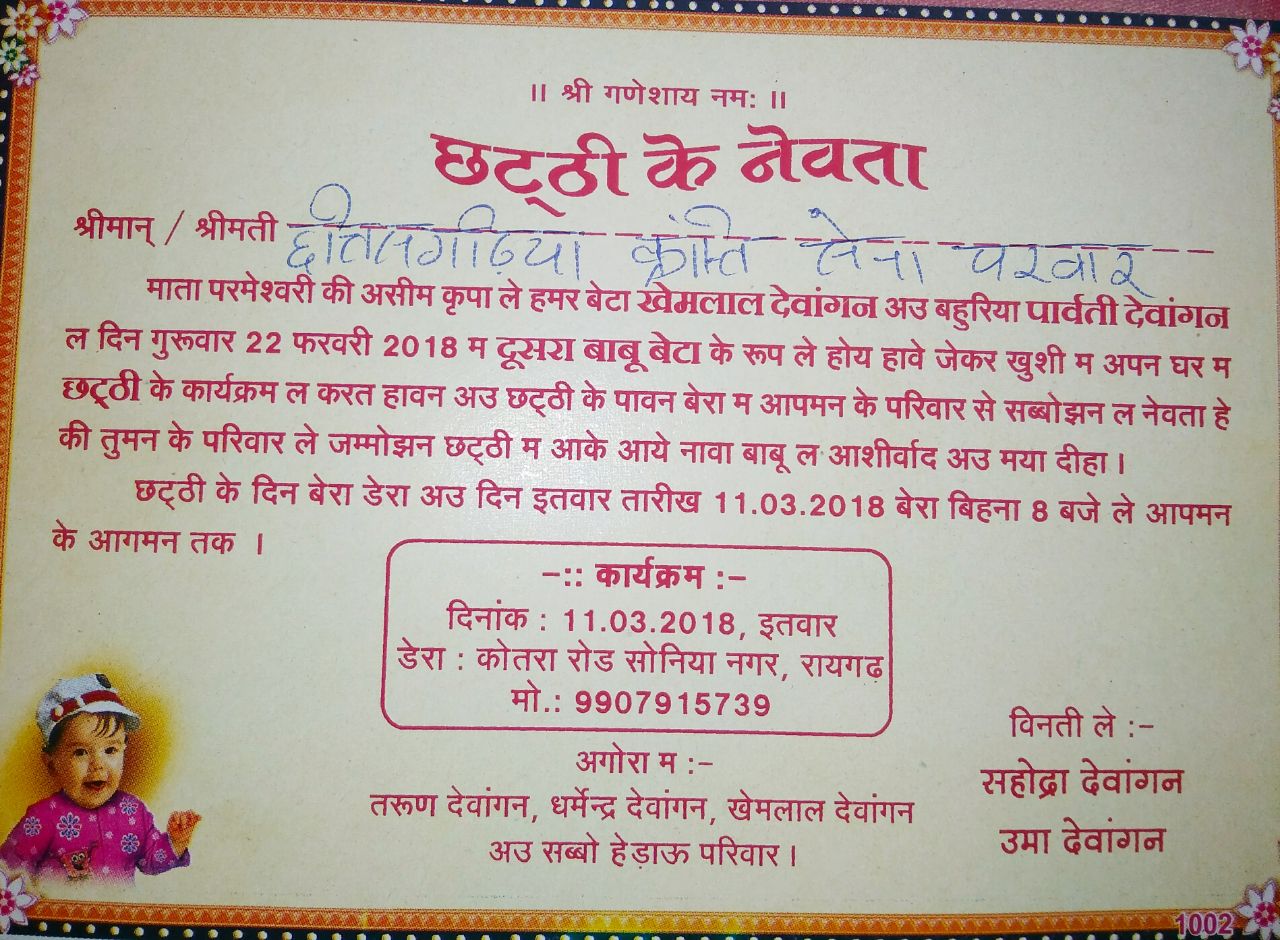 ॥ श्री गणेशाय नमः ॥
छट्ठी के नेवता
श्रीमान् / श्रीमती छत्तिसगढ़िया क्रांति सेना परवार
माता परमेश्वरी की असीम कृपा ले हमर बेटा खेमलाल देवांगन अउ बहुरिया पार्वती देवांगन
ल दिन गुरूवार 22 फरवरी 2018 म दूसरा बाबू बेटा के रूप ले होय हावे जेकर खुशी म अपन घर म
छट्ठी के कार्यक्रम ल करत हावन अउ छट्ठी के पावन बेरा म आपमन के परिवार से सब्बोझन ल नेवता हे
की तुमन के परिवार ले जम्मोझन छट्ठी म आके आये नावा बाबू ल आशीर्वाद अउ मया दीहा।
छट्ठी के दिन बेरा डेरा अउ दिन इतवार तारीख 11.03.2018 बेरा बिहना 8 बजे ले आपमन
के आगमन तक ।
-:: कार्यक्रम :-
दिनांक : 11.03.2018, इतवार
डेरा : कोतरा रोड सोनिया नगर, रायगढ़
मो.: 9907915739
अगोरा म :-
तरूण देवांगन, धर्मेन्द्र देवांगन, खेमलाल देवांगन
अउ सब्बो हेड़ाऊ परिवार।
विनती ले :-
सहोद्रा देवांगन
उमा देवांगन
1002